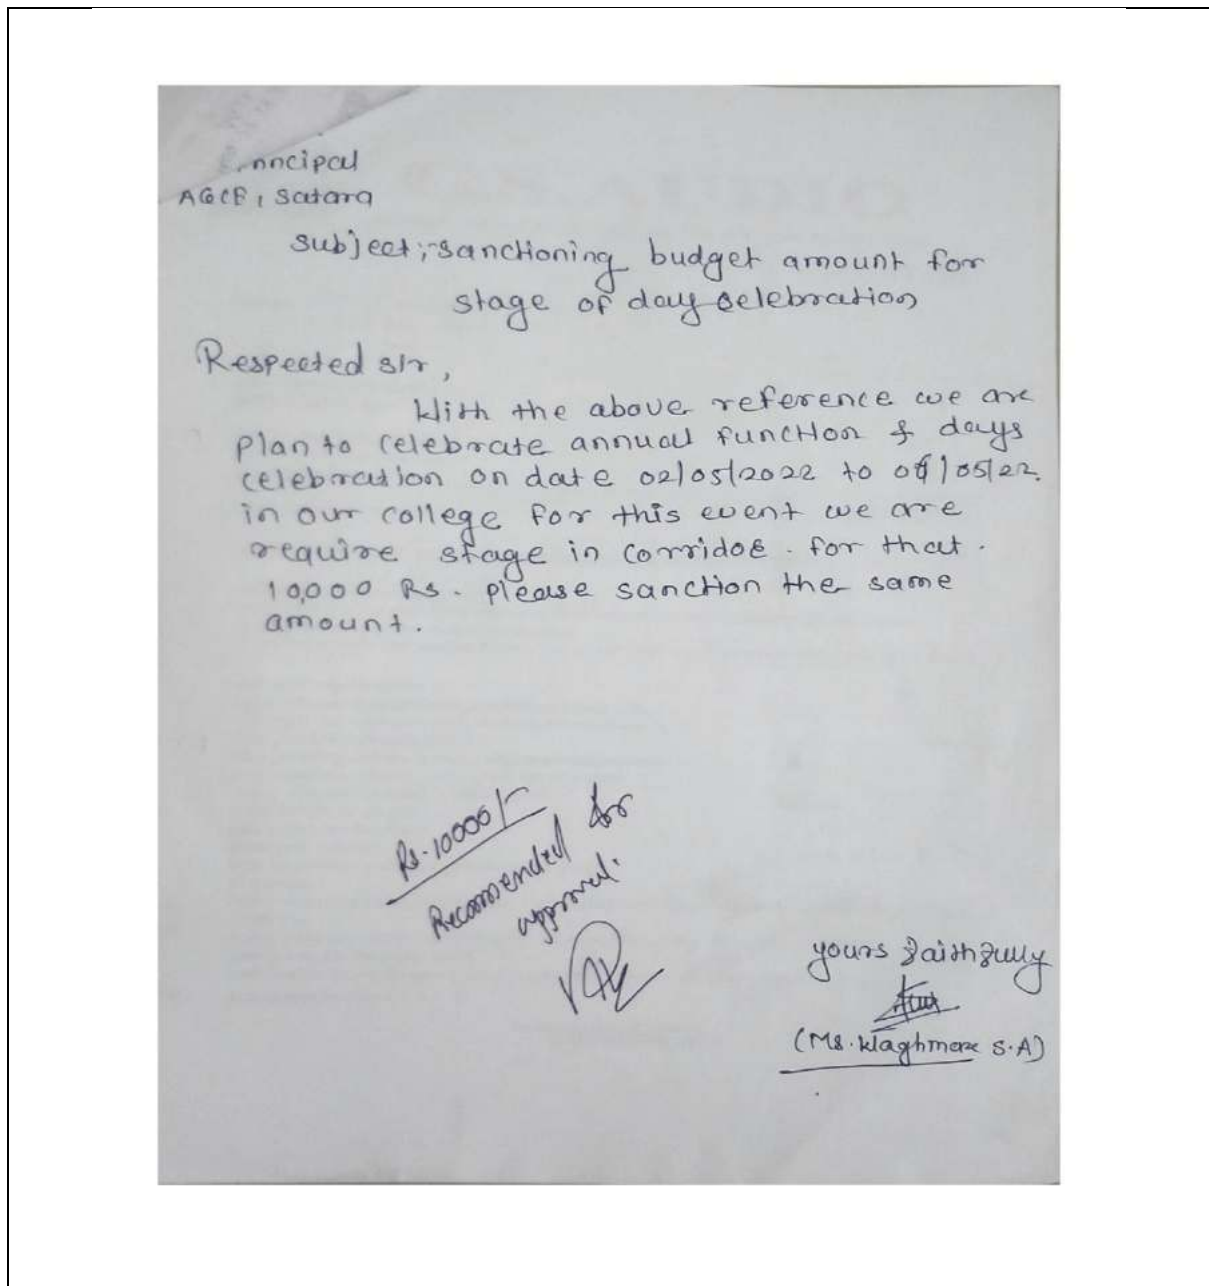 AGCE, Satara
Subject;-sanctioning budget amount for
stage of day celebration
Respected sir,
With the above reference we are
plan to celebrate annual function & days
celebration on date 02/05/2022 to /05/22.
in our college for this event we are
require stage in corridoe. for that.
10,000 Rs. please sanction the same
amount.
Rs. 10000/-
Recommended for
approval.
yours faithfully
(Ms. Waghmare S.A)